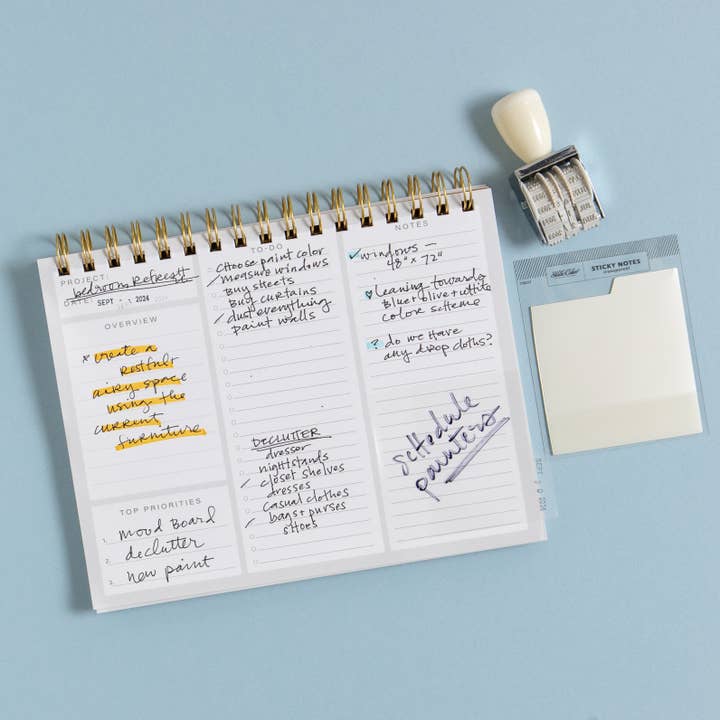 PROJECT:
bedroom Refresh
DATE: SEPT 2024
OVERVIEW
* create a
restful
airy space
using the
current
furniture
TOP PRIORITIES
1. mood Board
2. declutter
3. new paint
TO-DO
Choose paint color
✓ measure windows
Buy sheets
Buy curtains
✓ dust everything
paint walls
DECLUTTER
dresser
nightstands
✓ closet shelves
dresses
casual clothes
✓ bags + purses
shoes
NOTES
✓ windows —
48" x 72"
♥ leaning towards
Blue + olive + white
color scheme
? do we have
any drop cloths?
schedule
painters
STICKY NOTES
transparent